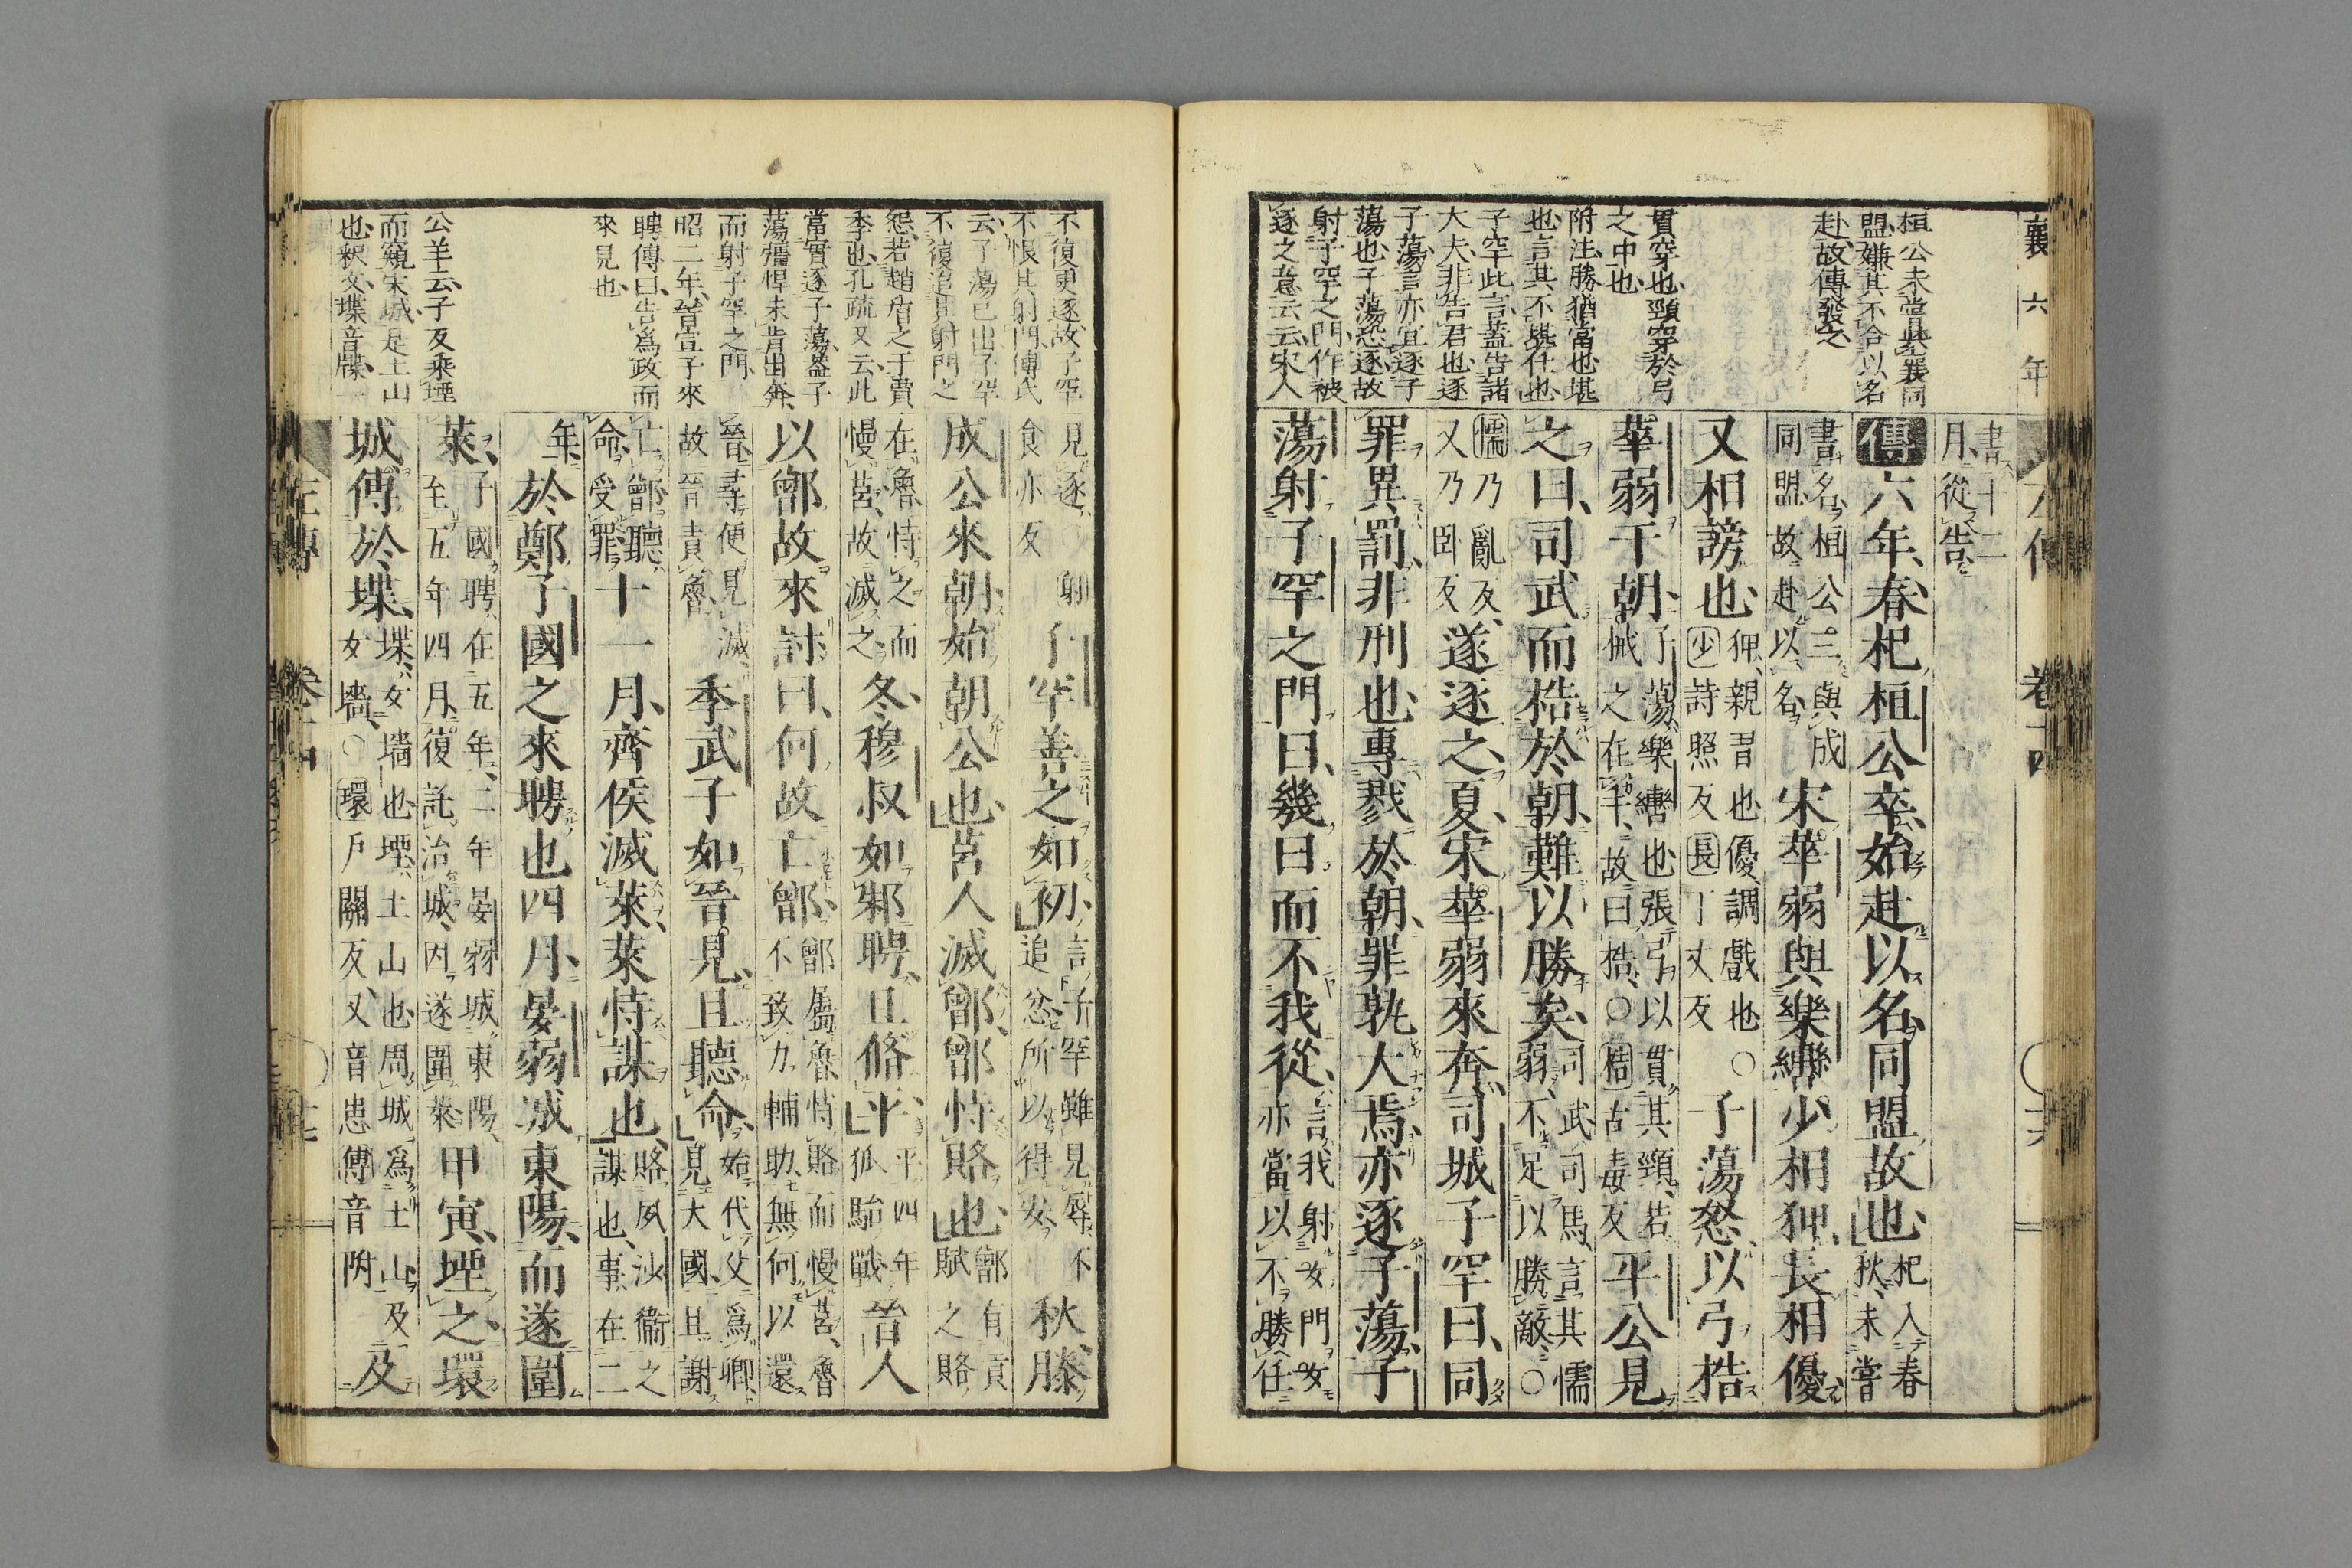 襄六年
桓公未嘗與襄同
盟、嫌其不合以名
赴、故傳發之、
貫穿也、頸穿於弓
之中也、
附注、勝猶當也、堪
也、言其不堪任也、
子罕此言、蓋告諸
大夫、非告君也、逐
子蕩、言亦宜逐子
蕩也、子蕩恐逐、故
射子罕之門、作被
逐之意云云、宋人
書十二
月、從告、
傳六年、春、杞桓公卒、始赴以名、同盟故也、杞入春
秋、未嘗
書名、桓公三與成
同盟、故赴以名、宋華弱與樂轡少相狎、長相優、
又相謗也、狎、親習也、優、調戲也、○
少詩照反長丁丈反子蕩怒、以弓梏
華弱于朝、子蕩、樂轡也、張弓以貫其頸、若
械之在手、故曰梏、○梏古毒反平公見
之曰、司武而梏於朝、難以勝矣、司武、司馬、言其懦
弱、不足以勝敵、○
懦乃亂反、
又乃臥反遂逐之、夏、宋華弱來奔、司城子罕曰、同
罪異罰、非刑也、專戮於朝、罪孰大焉、亦逐子蕩、子
蕩射子罕之門曰、幾日而不我從、言我射女門、女
亦當以不勝任
不復更逐、故子罕
不恨其射門、傳氏
云、子蕩已出、子罕
不復追其射門之
怨、若趙盾之于賈
季也、孔疏又云、此
當實逐子蕩、蓋子
蕩彊悍未肯出奔、
而射子罕之門、
昭二年、晉宣子來
聘、傳曰、告爲政而
來見也、
公羊云、子反乘堙
而窺宋城、是土山
也、釈文、堞音牒、一
見逐、射
食亦反子罕善之如初、言子罕雖見辱、不
追忿、所以得安、秋、滕
成公來朝、始朝公也、莒人滅鄫、鄫恃賂也、鄫有貢
賦之賂、
在魯、恃之而
慢莒、故滅之、冬、穆叔如邾聘、且脩平、平四年
狐駘戰、晉人
以鄫故來討曰、何故亡鄫、鄫屬魯、恃賂而慢莒、魯
不致力輔助、無何以還
晉、尋便見滅、
故晉責魯、季武子如晉見、且聽命、始代父爲卿、
見大國、且謝
亡鄫、聽
命受罪、十一月、齊侯滅萊、萊恃謀也、賂夙沙衛之
謀也、事在二
年、於鄭子國之來聘也、四月、晏弱城東陽、而遂圍
萊、子國聘、在五年、二年晏弱城東陽、
至五年四月、復託治城、因遂圍萊甲寅、堙之、環
城傅於堞、堞、女墻也、堙、土山也、周城爲土山、及
女墻、○環戶關反、又音患傅音附及